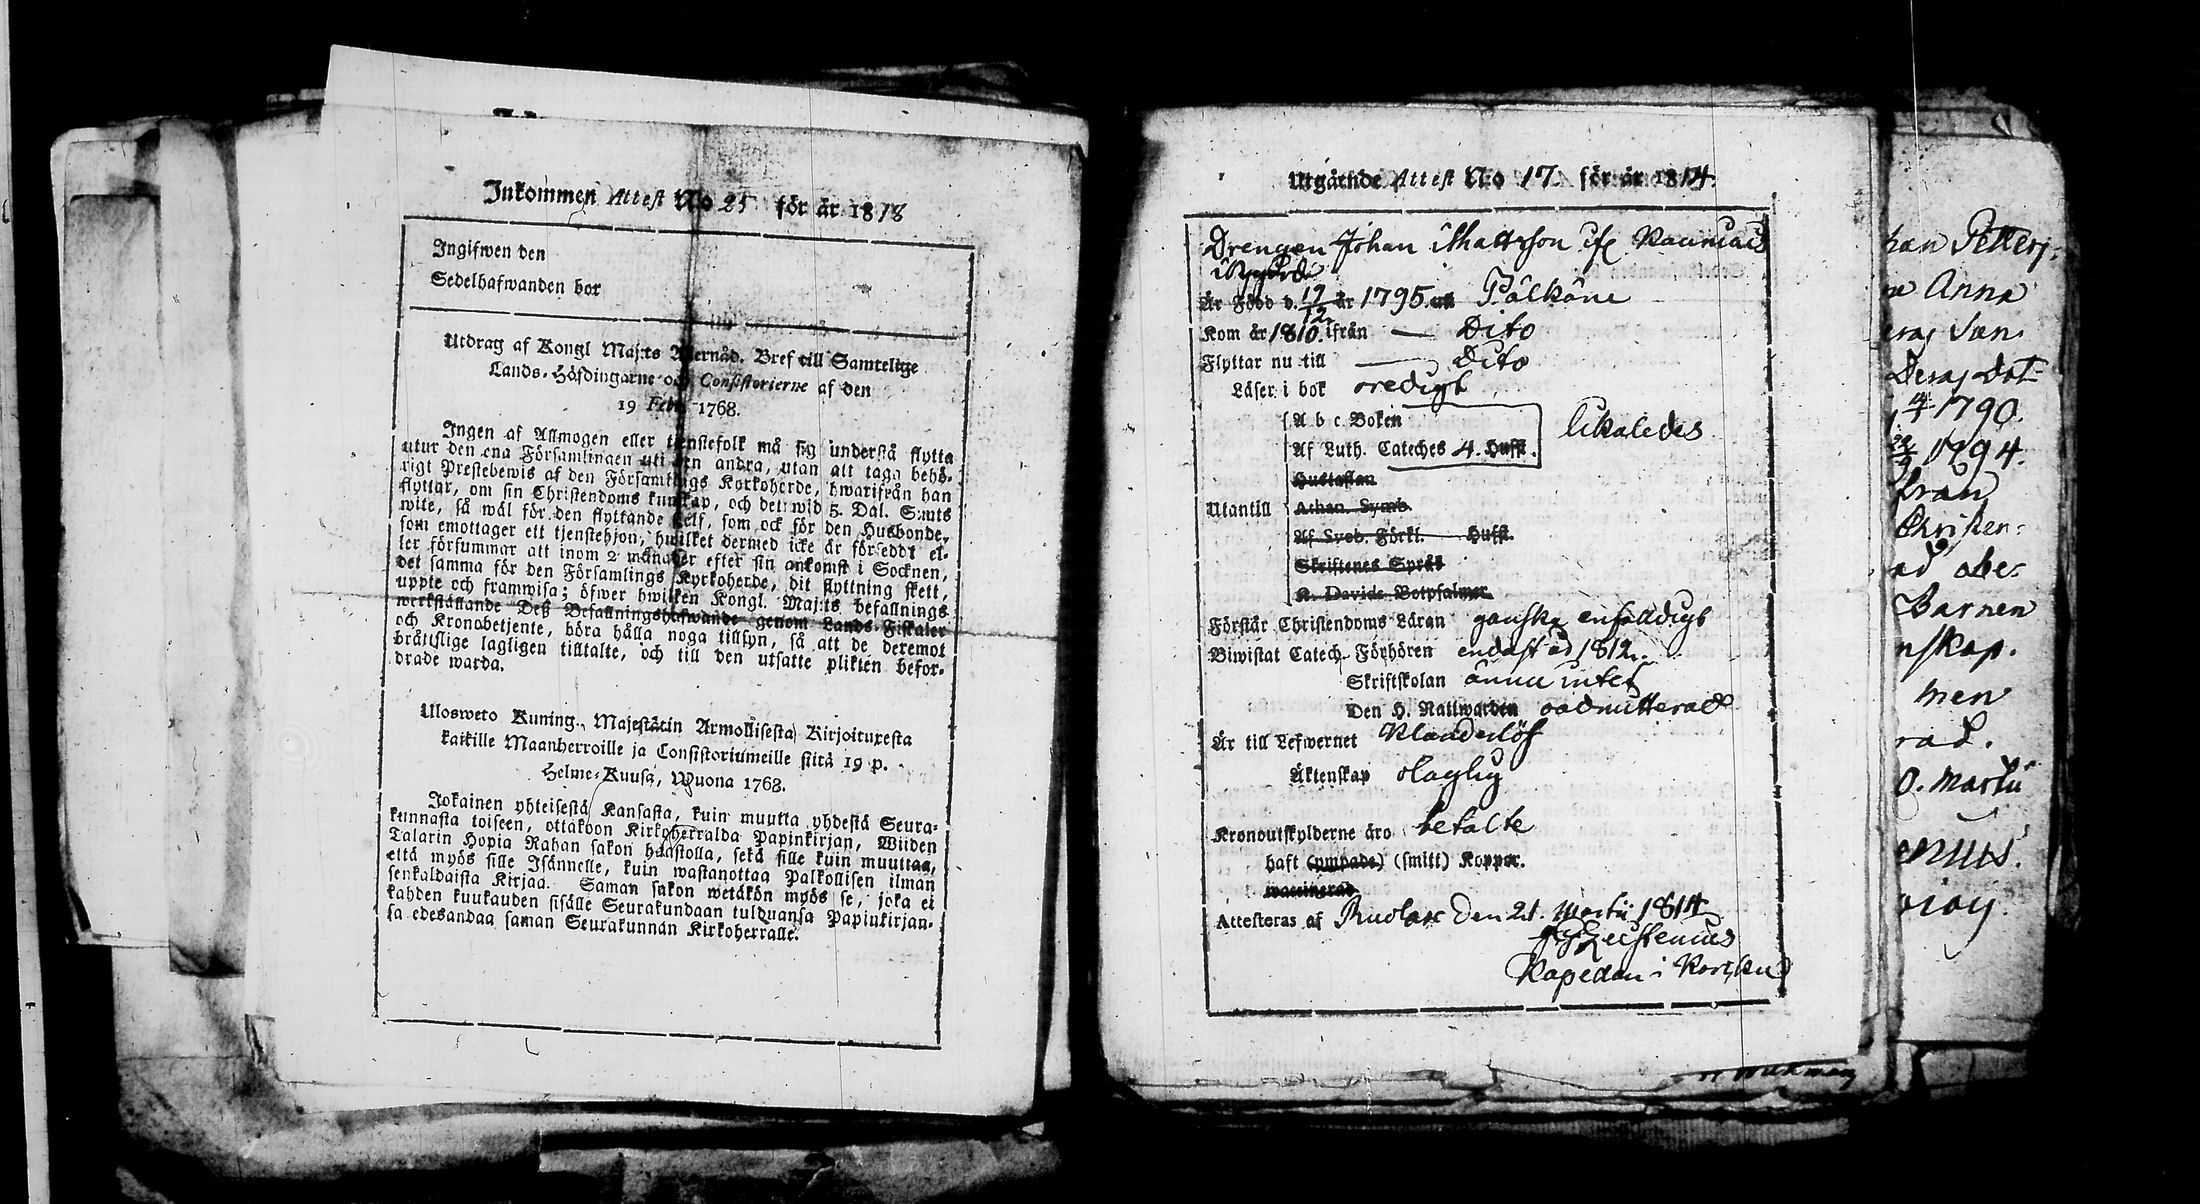 Inkommen Attest No 25 för år 1818
Ingifwen den
Sedelhafwanden bor
Utdrag af Kongl Maj:ts Allernåd. Bref till Samtelige
Lands-Höfdingarne och Consistorierne af den
19 Febr. 1768.
Ingen af Allmogen eller tjenstefolk må sig understå flytta
utur den ena Församlingen uti den andra, utan att taga behö-
rigt Prestebewis af den Församlings Kyrkoherde, hwarifrån han
flyttar, om sin Christendoms kunskap, och det wid 5. Dal. S:mts
wite, så wäl för den flyttande sielf, som ock för den Husbonde,
som emottager ett tjenstehjon, hwilket dermed icke är försedt el-
ler försummar att inom 2 månader efter sin ankomst i Socknen,
det samma för den Församlings Kyrkoherde, dit flyttning skett,
uppte och framwisa; öfwer hwilken Kongl. Maj:ts befallnings
werkställande Deß Befallningshafwande genom Lands-Fiskaler
och Kronobetjente, böra hålla noga tillsyn, så att de deremot
bråttslige lagligen tilltalte, och till den utsatte plikten befor-
drade warda.
Ulosweto Kuning. Majestätin Armollisesta Kirjoituxesta
kaikille Maanherroille ja Consistoriumeille siitä 19 p.
Helme-Kuusa, Wuona 1768.
Jokainen yhteisestä Kansasta, kuin muutta yhdestä Seura-
kunnasta toiseen, ottakoon Kirkoherralda Papinkirjan, Wiiden
Talarin Hopia Rahan sakon haastolla, sekä sille kuin muuttaa,
että myös sille Isännelle, kuin wastanottaa Palkollisen ilman
senkaldaista Kirjaa. Saman sakon wetäkön myös se, joka ei
kahden kuukauden sisälle Seurakundaan tulduansa Papinkirjan-
sa edesandaa saman Seurakunnan Kirkoherralle.
Utgående Attest No 17. för år 1814.
Drengen Johan Mattsson ifr
Är Född d. 19/12 år 1795. uti Pälkäne
Kom år 1810. ifrån — Dito
Flyttar nu till — Dito
Läser i bok oredigt
A b c Boken
Af Luth. Cateches 4. Hufst. likaledes
Hustaflan
Utantill Athan. Symb.
Af Sveb. Förkl. Hufst.
Skriftenes Språk
K. Davids Botpsalmer.
Förstår Christendoms Läran ganska enfalldigt
Biwistat Catech. Förhören endast åd 1812.
Skriftskolan ännu intet
Den H. Nattwarden oadmitterad
Är till Lefwernet Klanderlös
Äktenskap olaglig
Kronoutskylderne äro betalte
haft (ympade) (smitt) Koppor.
waccinerad
Attesteras af Den 21. Martii 1814
Kapellan i
han Petters
Anna
eras Son
Deras Dot
1790.
1794.
från
Christen-
ad obe-
Barnen
nskap.
men
rad.
0. Martii